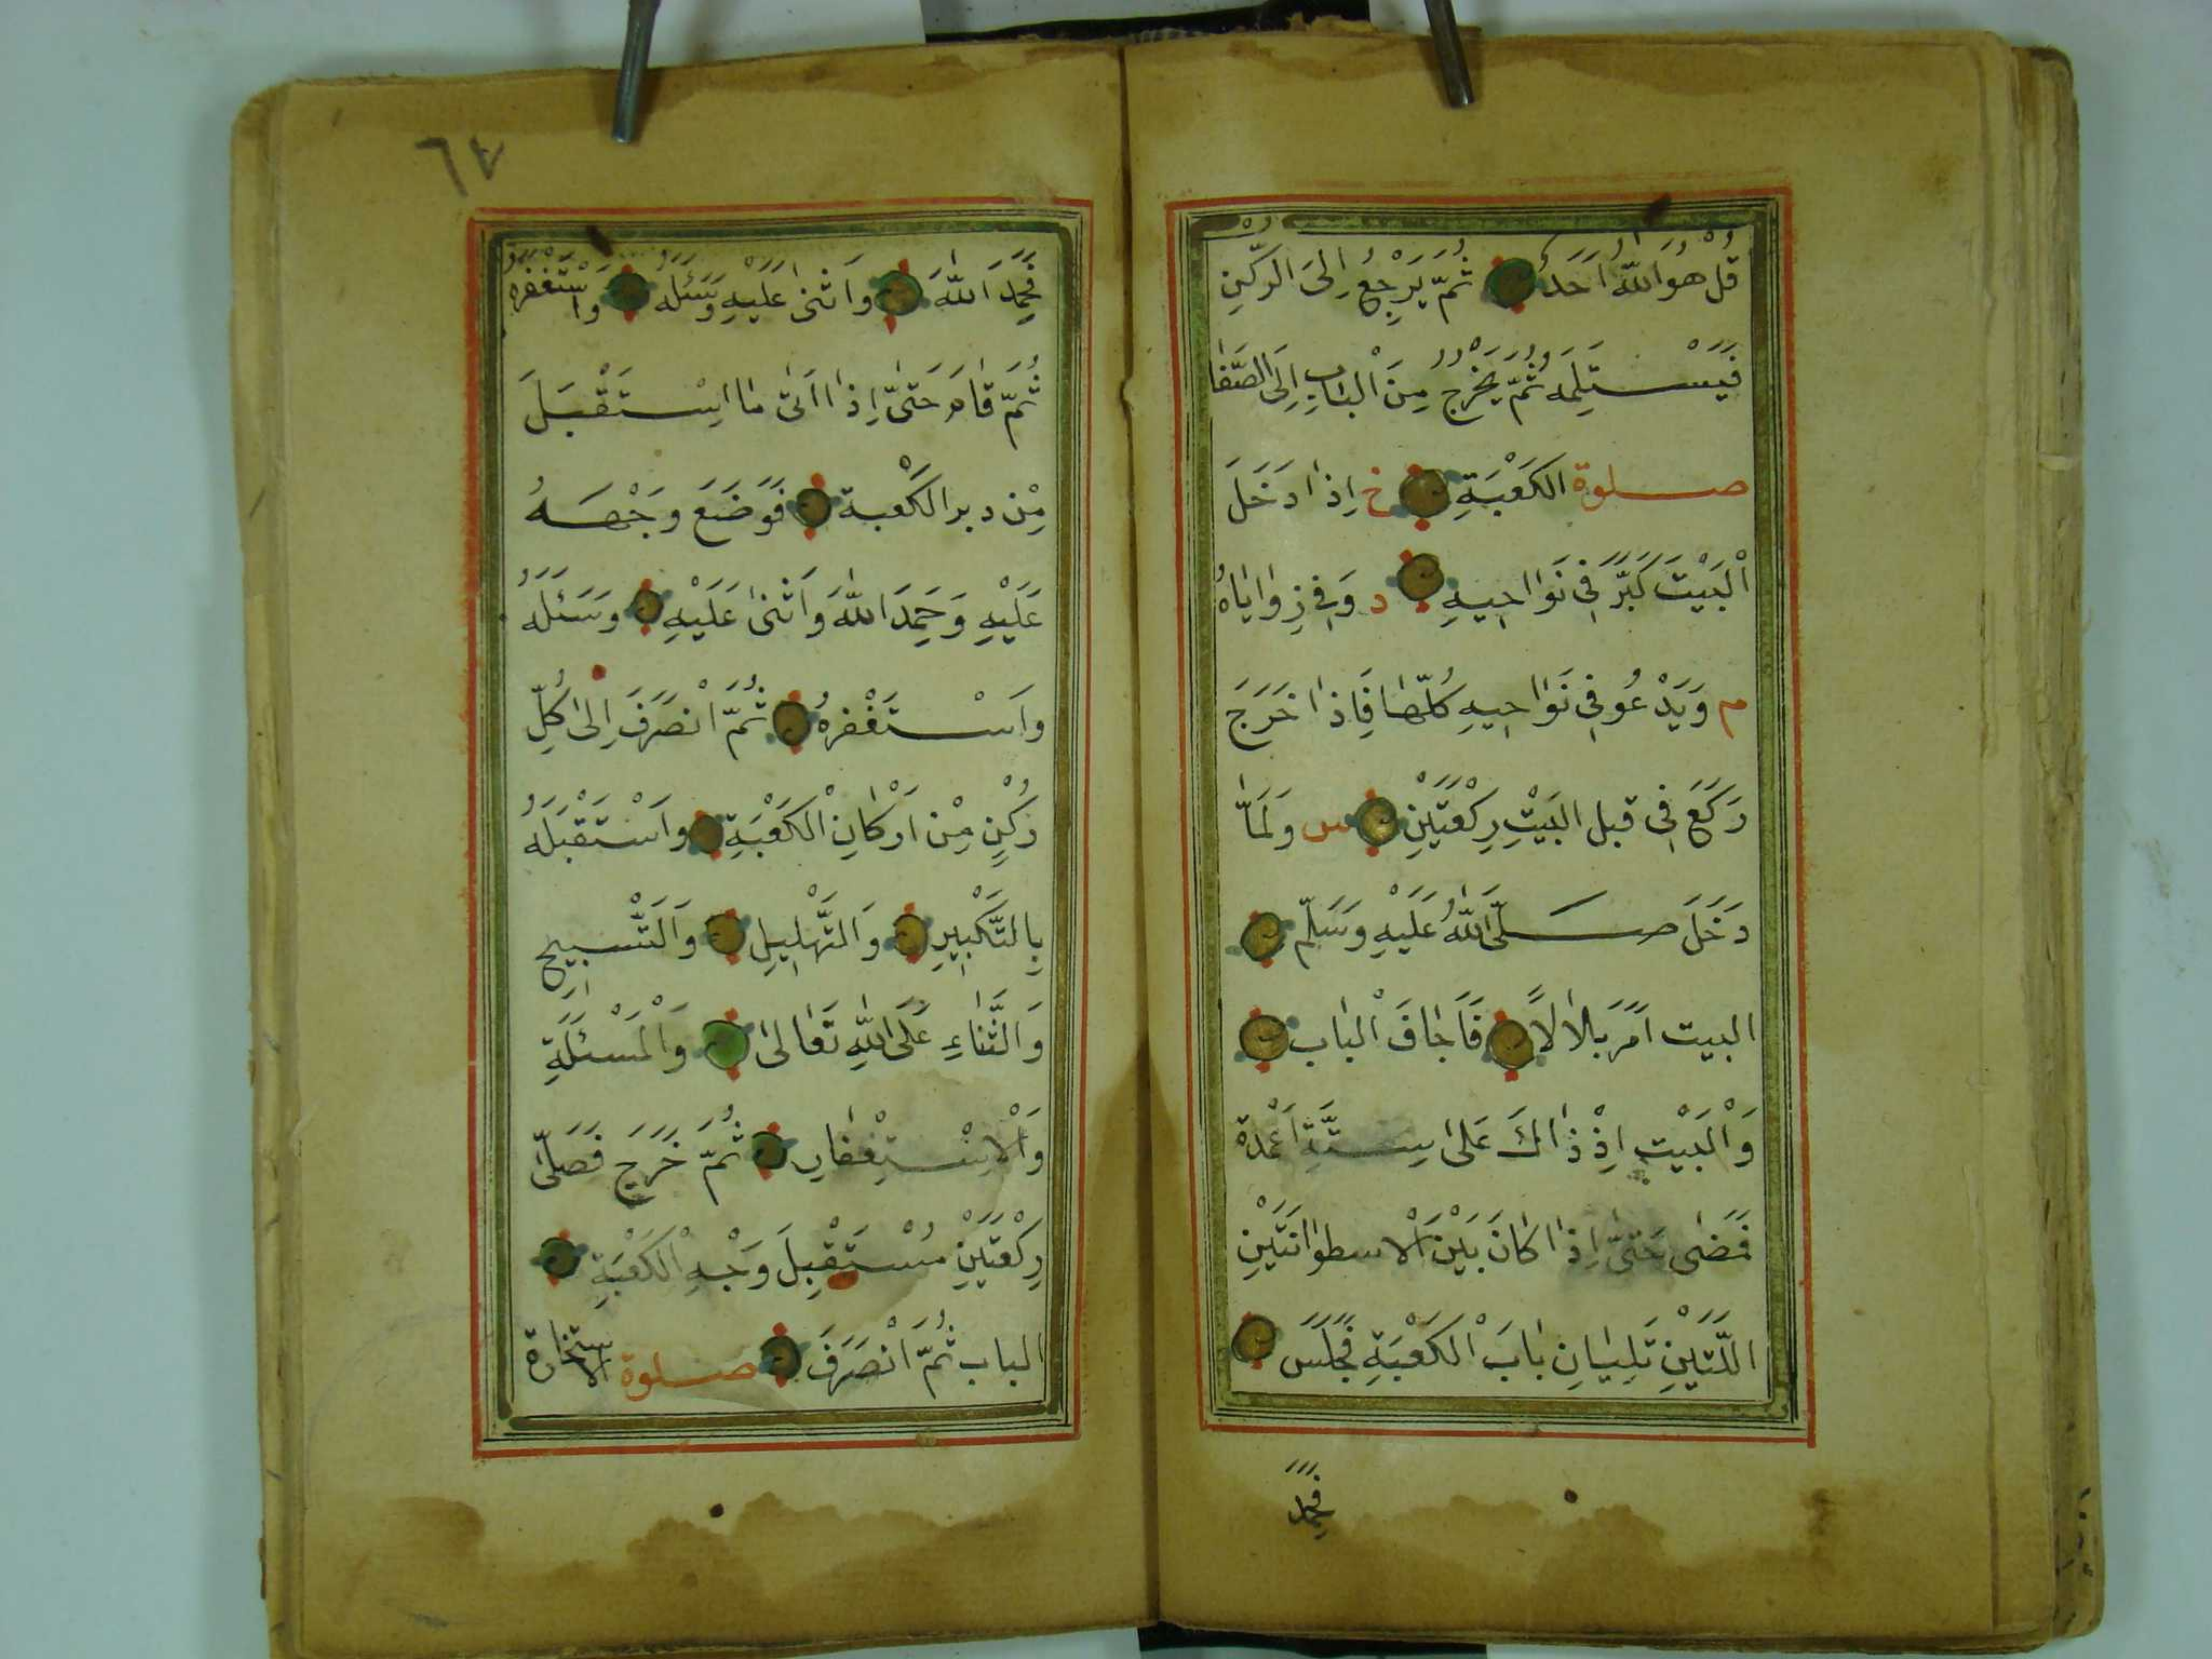 قُلْ هُوَ اللّٰهُ اَحَدٌ ثُمَّ يَرْجِعُ اِلَى الرّكْنِ
فَيَسْتَلِمَهُ ثُمَّ يَخْرُجُ مِنَ الْبَابِ اِلَى الصَّفَا
صلوة الكَعْبَةِ خ اِذَا دَخَلَ
الْبَيْتَ كَبَّرَ فِي نَوَاحِيهِ د وَفِي زِوَايَاهُ
م وَيَدْعُو فِي نَوَاحِيهِ كُلّهَا فَاِذَا خَرَجَ
رَكَعَ فِي قبل البَيْتِ رِكْعَتَيْنِ س وَلَمَّا
دَخَلَ صَلَّى اللّٰهُ عَلَيْهِ وَسَلّم
البيت اَمَرَ بَلَالًا فَاَجَافَ الْبَاب
وَالْبَيْت اِذْ ذَاكَ عَلَى سِتَّةِ اَعْمِدَة
فَمَضٰى حَتّٰى اِذَا كَانَ بَيْنَ الْاسطوَانَتَيْنِ
اللَّتَيْنِ تَلِيَانِ بَابَ الْكَعْبَةِ جَلَسَ
فَحَمِدَ
٦٧
فَحَمِدَ اللّٰهَ وَاَثْنٰى عَلَيْهِ وَسَئَلَهُ وَاسْتَغْفَرَهُ
ثُمَّ قَامَ حَتّٰى اِذَا اَتٰى مَا اسْتَقْبَلَ
مِنْ دبر الكَعْبة فَوَضَعَ وَجْهَهُ
عَلَيْهِ وَحَمِدَ اللّٰهَ وَاَثْنٰى عَلَيْهِ وَسَئَلَهُ
وَاَسْتَغْفرهُ ثُمَّ انْصَرَفَ اِلٰى كُلِّ
رُكْنٍ مِنْ اَرْكَانِ الْكَعْبَةِ وَاَسْتَقْبَلَهُ
بِالتَّكْبِيرِ وَالتَّهْلِيلِ وَالتَّسْبِيح
وَالثَّنَاءِ عَلَى اللّٰهِ تَعَالٰى وَالْمَسْئَلَةِ
وَالْاِسْتِغْفَارِ ثُمَّ خَرَجَ فَصَلّٰى
رِكْعَتَيْنِ مُسْتَقْبِلَ وَجْهِ الْكَعْبَةِ
الباب ثُمَّ انْصَرَفَ صلوة الاستخارة